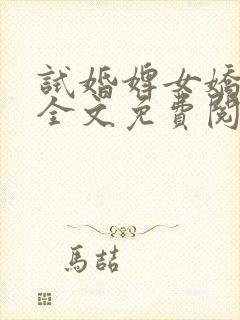 試婚婢女嬌
全文免費閱
馬喆